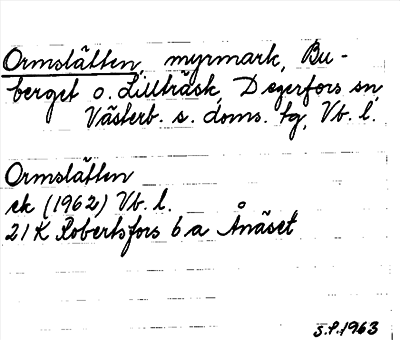 Ormslåtten, myrmark, Bu-
berget o. Lillträsk, Degerfors sn,
Västerb. s. doms. tg, Vb. l.
Ormslåtten
ek (1962) Vb. l.
21 K Robertsfors 6 a Ånäset
S.P. 1963